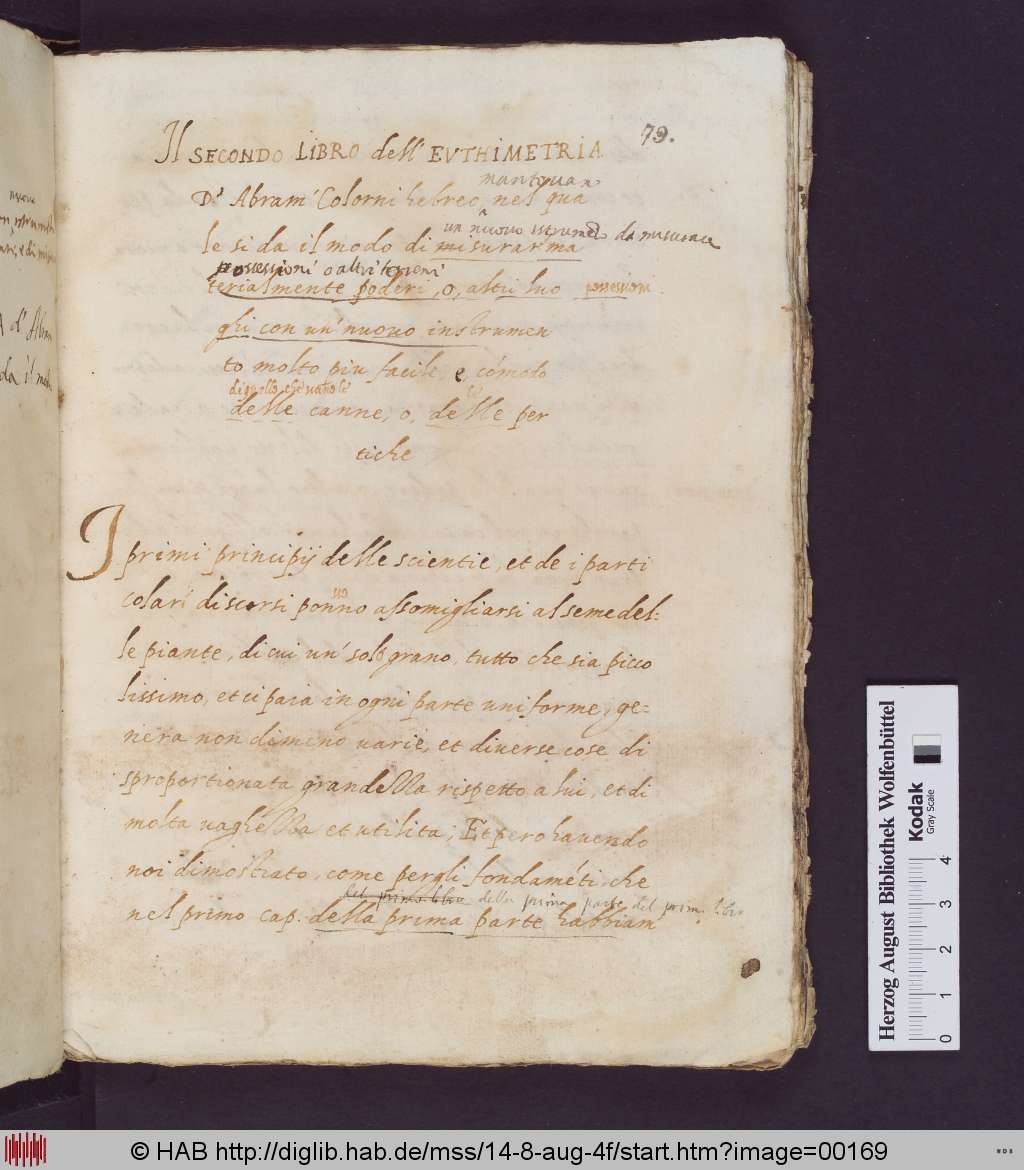 79.
Il SECONDO LIBRO dell' EVTHIMETRIA
mantouan
D'. Abram' Colorni hebreo nel qua
un nuouo istrumēto da misurare
le si da il modo di misurar ma
possessioni o altri terreni
terialmente poderi, o, altri luo possessioni
ghi con un' nuouo instrumen
to molto piu facile, e, cómodo
di quello che
delle canne, o, delle per
tiche
I primi principij delle scientie, et de i parti
colari discorsi ponno assomigliarsi al seme del:
le piante, di cui un' solo grano, tutto che sia picco
lissimo, et ci paia in ogni parte uniforme, ge=
nera non dimeno uarie, et diuerse cose di
sproportionata grandezza rispetto a lui, et di
molta uaghezza et utilita; Et pero hauendo
noi dimostrato, come per gli fondaméti, che
del primo libro della prima parte del prim. libro
nel primo cap. della prima parte habbiam
Herzog August Bibliothek Wolfenbüttel
Kodak
Gray Scale
0 1 2 3 4
© HAB http://diglib.hab.de/mss/14-8-aug-4f/start.htm?image=00169